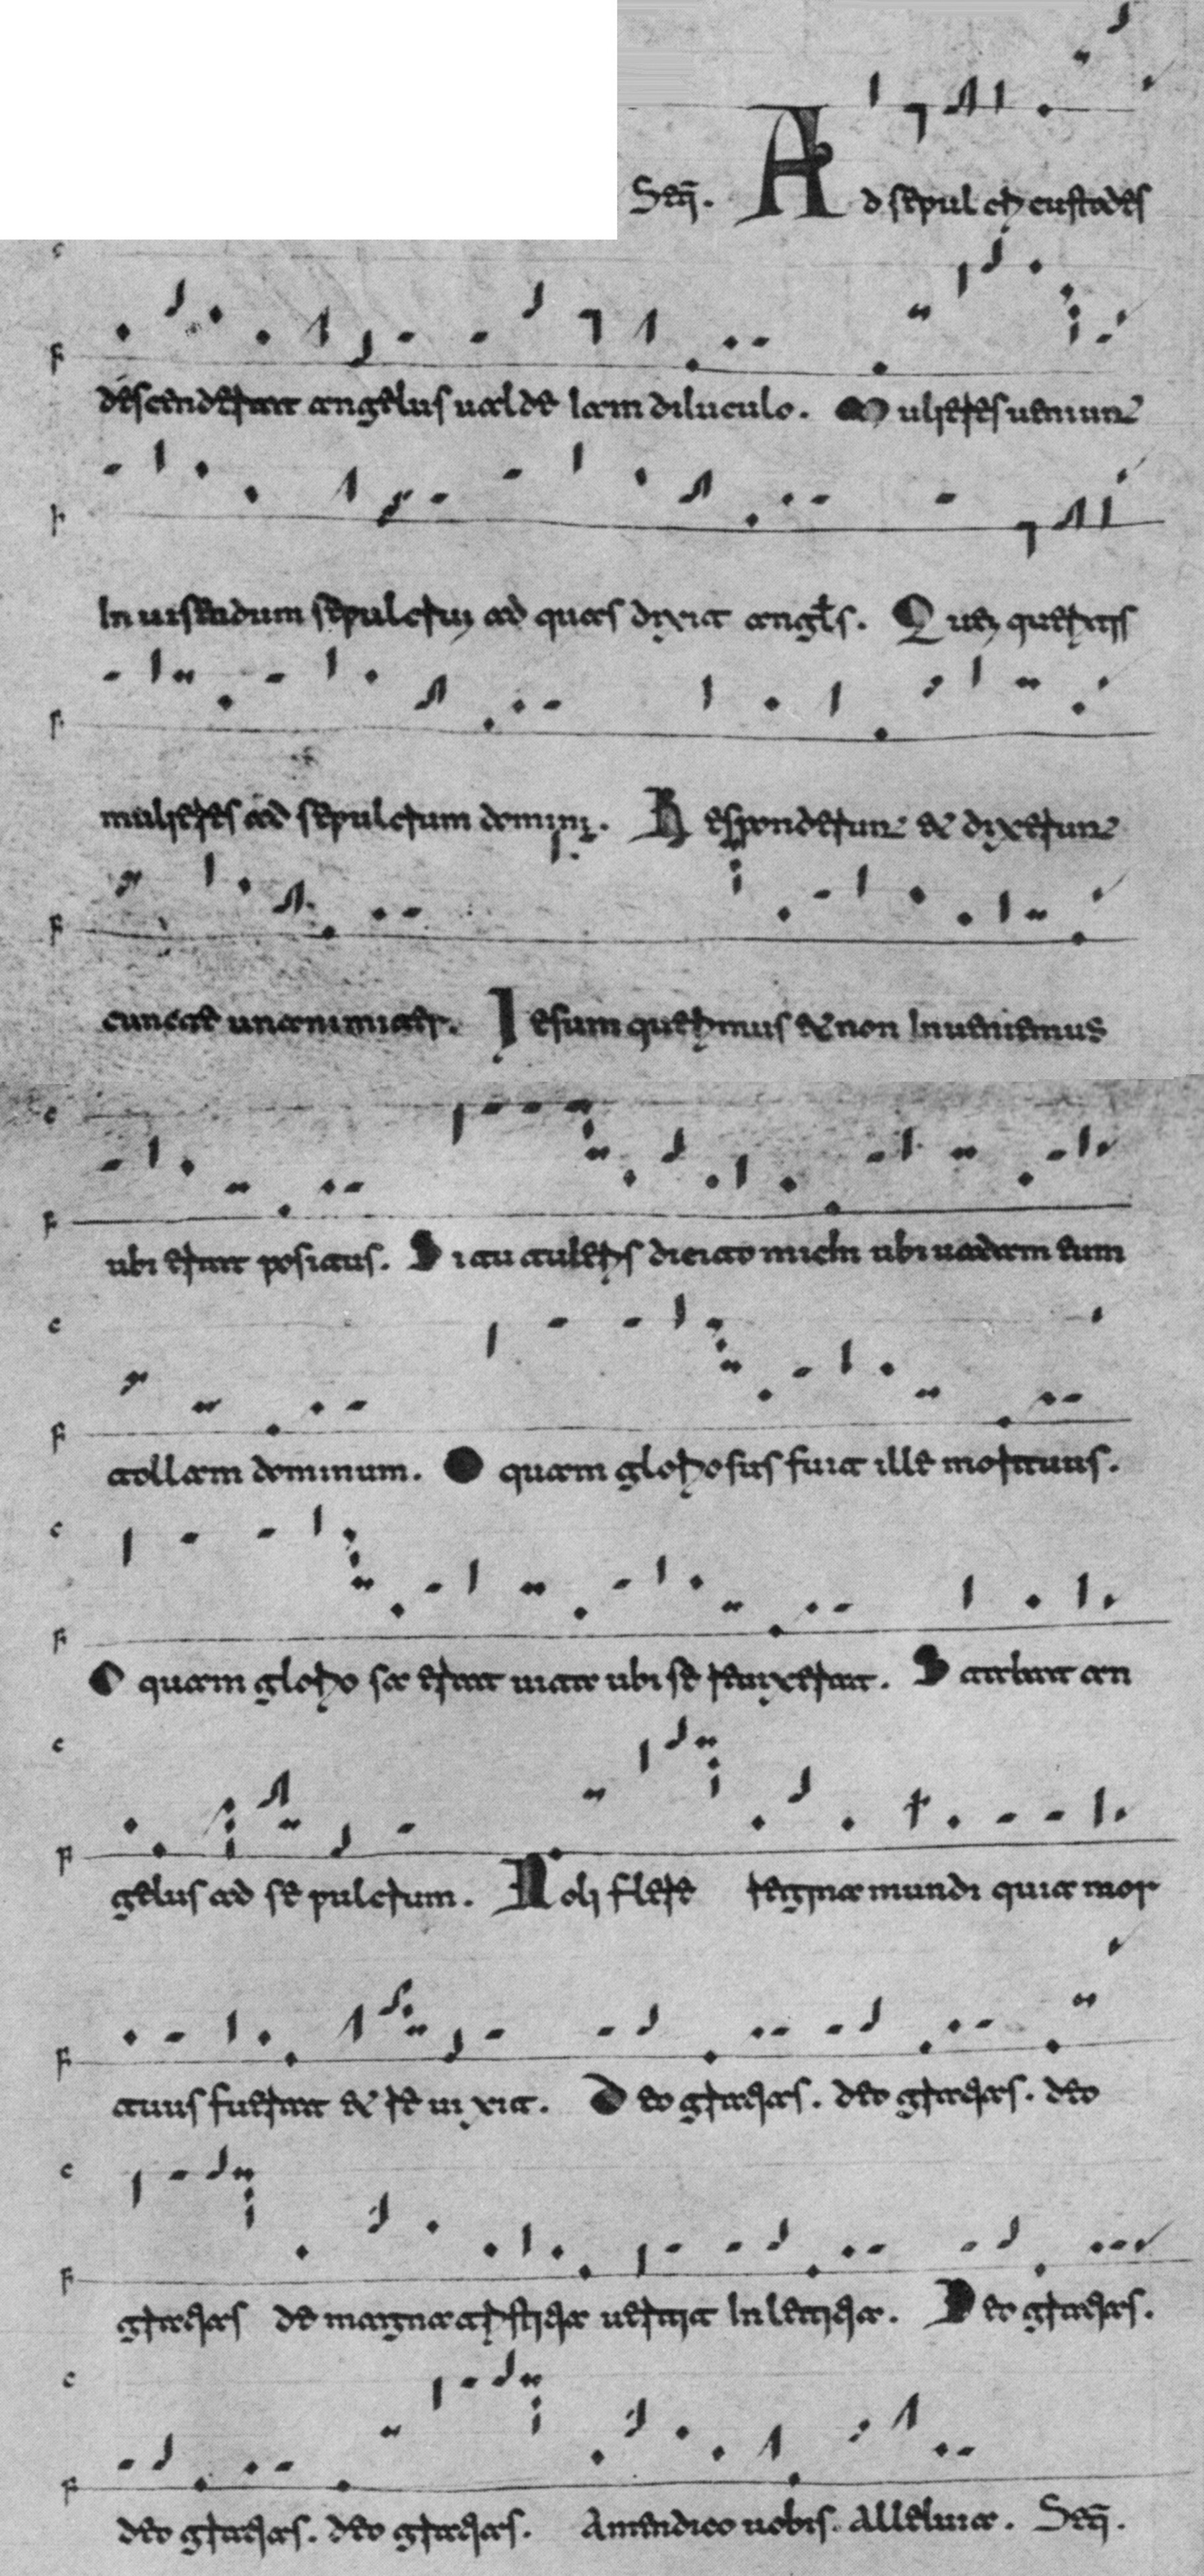 Seq̃. Ad sepulcri custodes
descenderat angelus ualde lam diluculo. Mulieres uenunt
In uisendum sepulcrum ad quas dixit angl̃s. Quem queritis
mulieres ad sepulcrum domini. Responderunt & dixerunt
cuncte unanimiter. Iesum querimus & non Inuenimus
ubi erat positus. Dic tu tuleris dicito michi ubi uadam eum
tollam dominum. O quam gloriosus fuit ille mortuus.
O quam gloriosa erat uita ubi se reuixerat. Batlat an
gelus ad sepulcrum. Noli flere regina mundi quia mor
tuus fuerat & re uixit. Deo gratias. deo gratias. deo
gratias de magna tristitia uertit In letitia. Deo gratias.
deo gratias. deo gratias. Amen dico uobis. Alleluia. Seq̃.